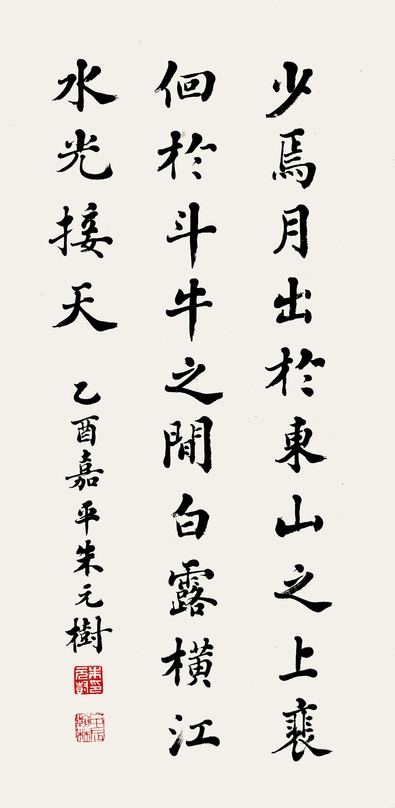 少焉月出於東山之上裴
佪於斗牛之間白露橫江
水光接天
乙酉嘉平朱元樹